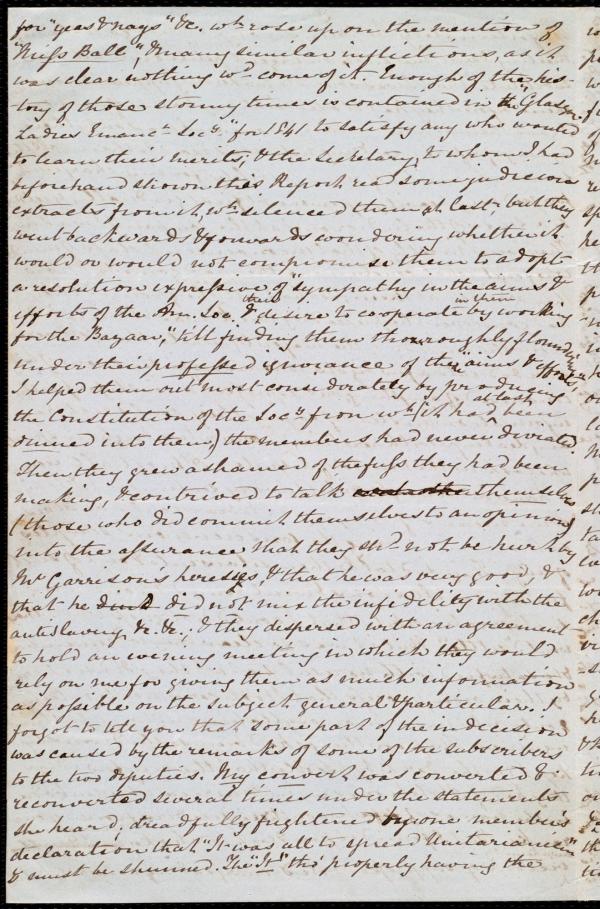 for "yeas & nays" &c. wh. rose up on the mention of
"Miss Ball", & many similar inflictions, as it
was clear nothing wd. come of it. Enough of the his-
tory of those stormy times is contained in the "Glasgow
Ladies Emanc.n Socy." for 1841 to satisfy any who wanted
to learn their merits; & the Secretary, to whom I had
beforehand shown this Report read some judicious
extracts from it, wh. silenced them at last; but they
went backwards & forwards wondering whether it
would or would not compromise them to adopt
a resolution expressive of "sympathy in the aims &
efforts of the Am. Soc. & their desire to cooperate in them by working
for the Bazaar," till finding them thouroughly floundering
under their professed ignorance of the "aims & efforts"
I helped them out most considerately by producing
the Constitution of the Socy. from wh. (it had at last been
dinned into them) the members had never diviated.
Then they grew ashamed of the fuss they had been
making, & contrived to talk themselves
(those who did commit themselves to an opinion)
into the assurance that they shd. not be hurt by
Mr Garrison's heresies, & that he was very good, &
that he did not mix the infidelity with the
antislavery, &c. &c., & they dispersed with an agreement
to hold an evening meeting in which they would
rely on me for giving them as much information
as possible on the subject general & particular. I
forgot to tell you that some part of the indecision
was caused by the remarks of some of the subscribers
to the two deputies. My convert was converted &
reconverted several times under the statements
she heard, dreadfully frightened by one member's
declaration that "It was all to spread Unitarianism"
& must be shunned. The "It" tho' properly having the